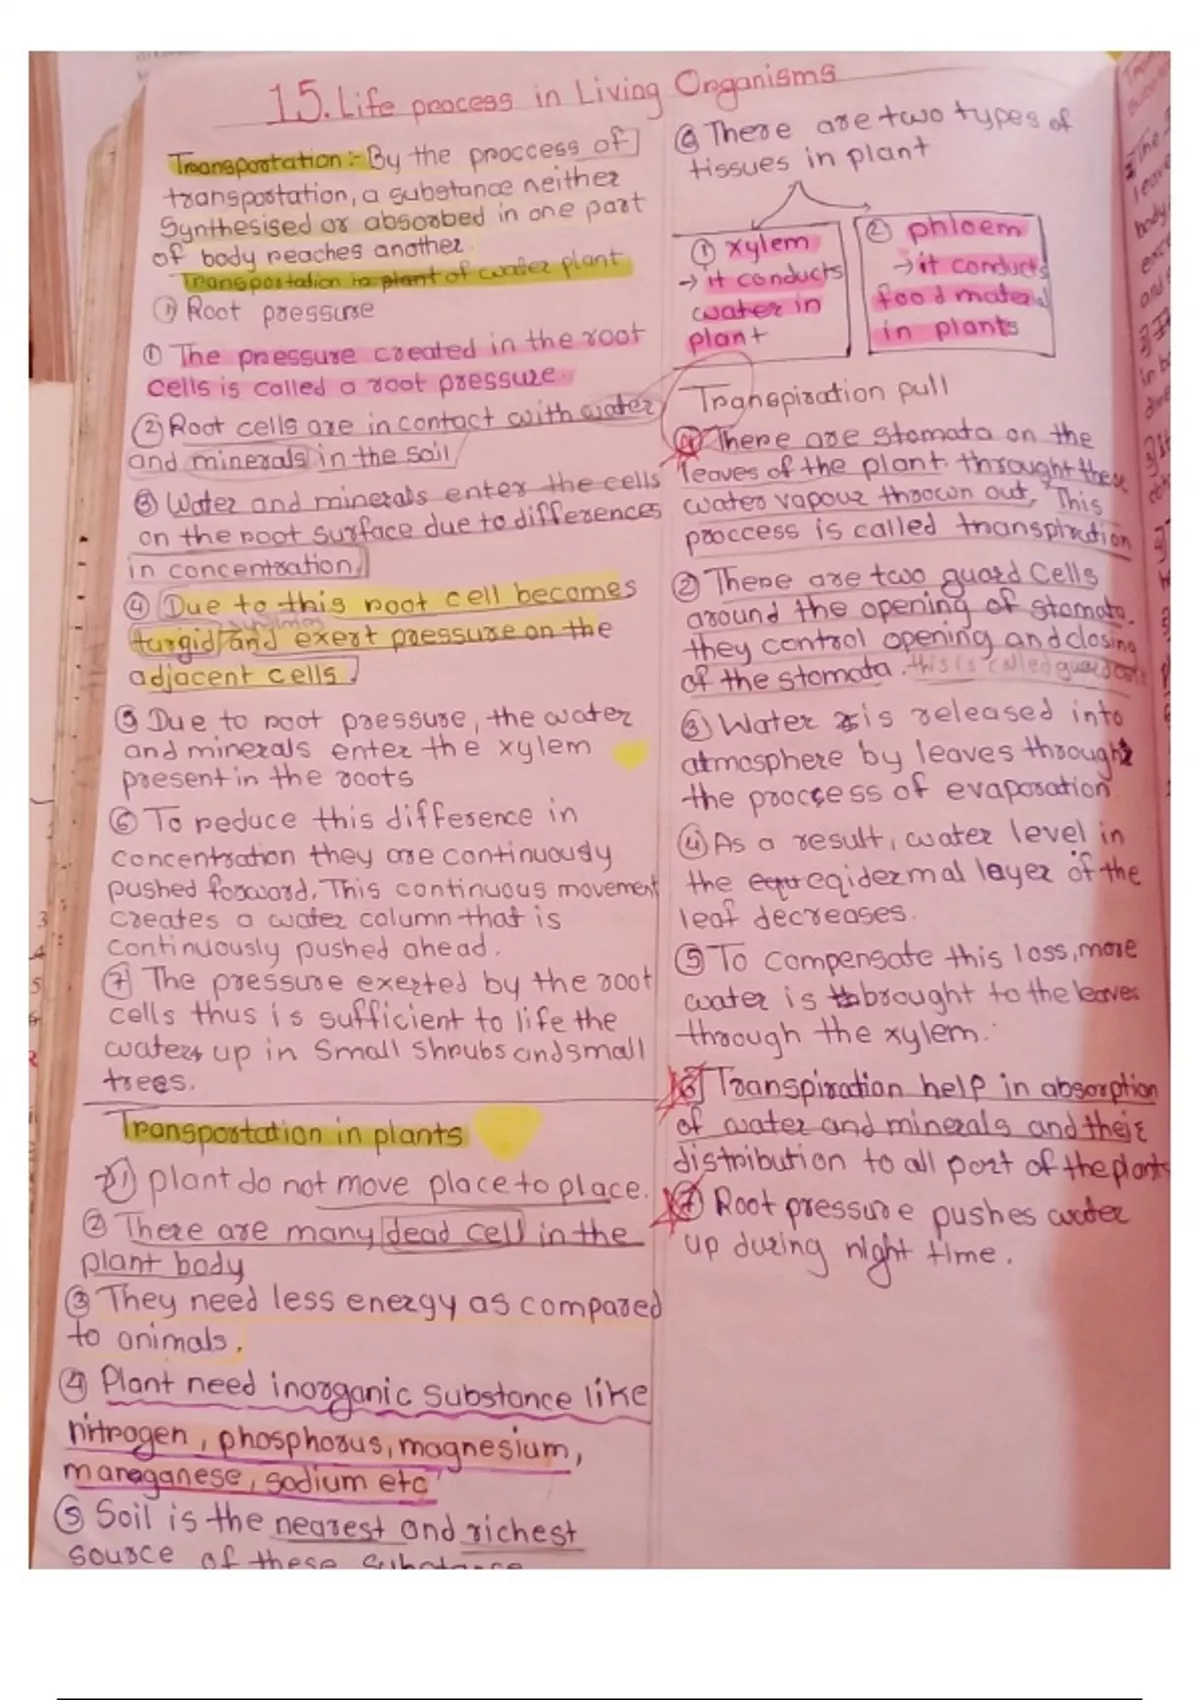 15. Life process in Living Organisms
Transportation :- By the proccess of
transportation, a substance neither
Synthesised or absorbed in one part
of body reaches another.
Transportation in plant of water plant
① Root pressure
① The pressure created in the root
cells is called a root pressure.
② Root cells are in contact with water
and minerals in the soil
③ Water and minerals enter the cells
on the root surface due to differences
in concentration.
④ Due to this root cell becomes
turgid and exert pressure on the
adjacent cells.
⑤ Due to root pressure, the water
and minerals enter the xylem
present in the roots
⑥ To reduce this difference in
concentration they are continuously
pushed forward. This continuous movement
creates a water column that is
continuously pushed ahead.
⑦ The pressure exerted by the root
cells thus is sufficient to life the
water up in small shrubs and small
trees.
Transportation in plants
① plant do not move place to place.
② There are many dead cell in the
plant body
③ They need less energy as compared
to animals.
④ Plant need inorganic substance like
nitrogen, phosphorus, magnesium,
managanese, sodium etc
⑤ Soil is the nearest and richest
source of these substance
⑥ There are two types of
tissues in plant
① xylem
→ it conducts
water in
plant
② phloem
→ it conducts
food material
in plants
Transpiration pull
① There are stomata on the
leaves of the plant. throught these
water vapour thrown out. This
proccess is called transpiration
② There are two guard Cells
around the opening of stomata.
they control opening and closing
of the stomata. this is called guard cells
③ Water is released into
atmosphere by leaves throught
the proccess of evaporation
④ As a result, water level in
the eqidermal layer of the
leaf decreases.
⑤ To compensate this loss, more
water is brought to the leaves
through the xylem.
⑥ Transpiration help in absorption
of water and minerals and their
distribution to all part of the plants
⑦ Root pressure pushes water
up during night time.